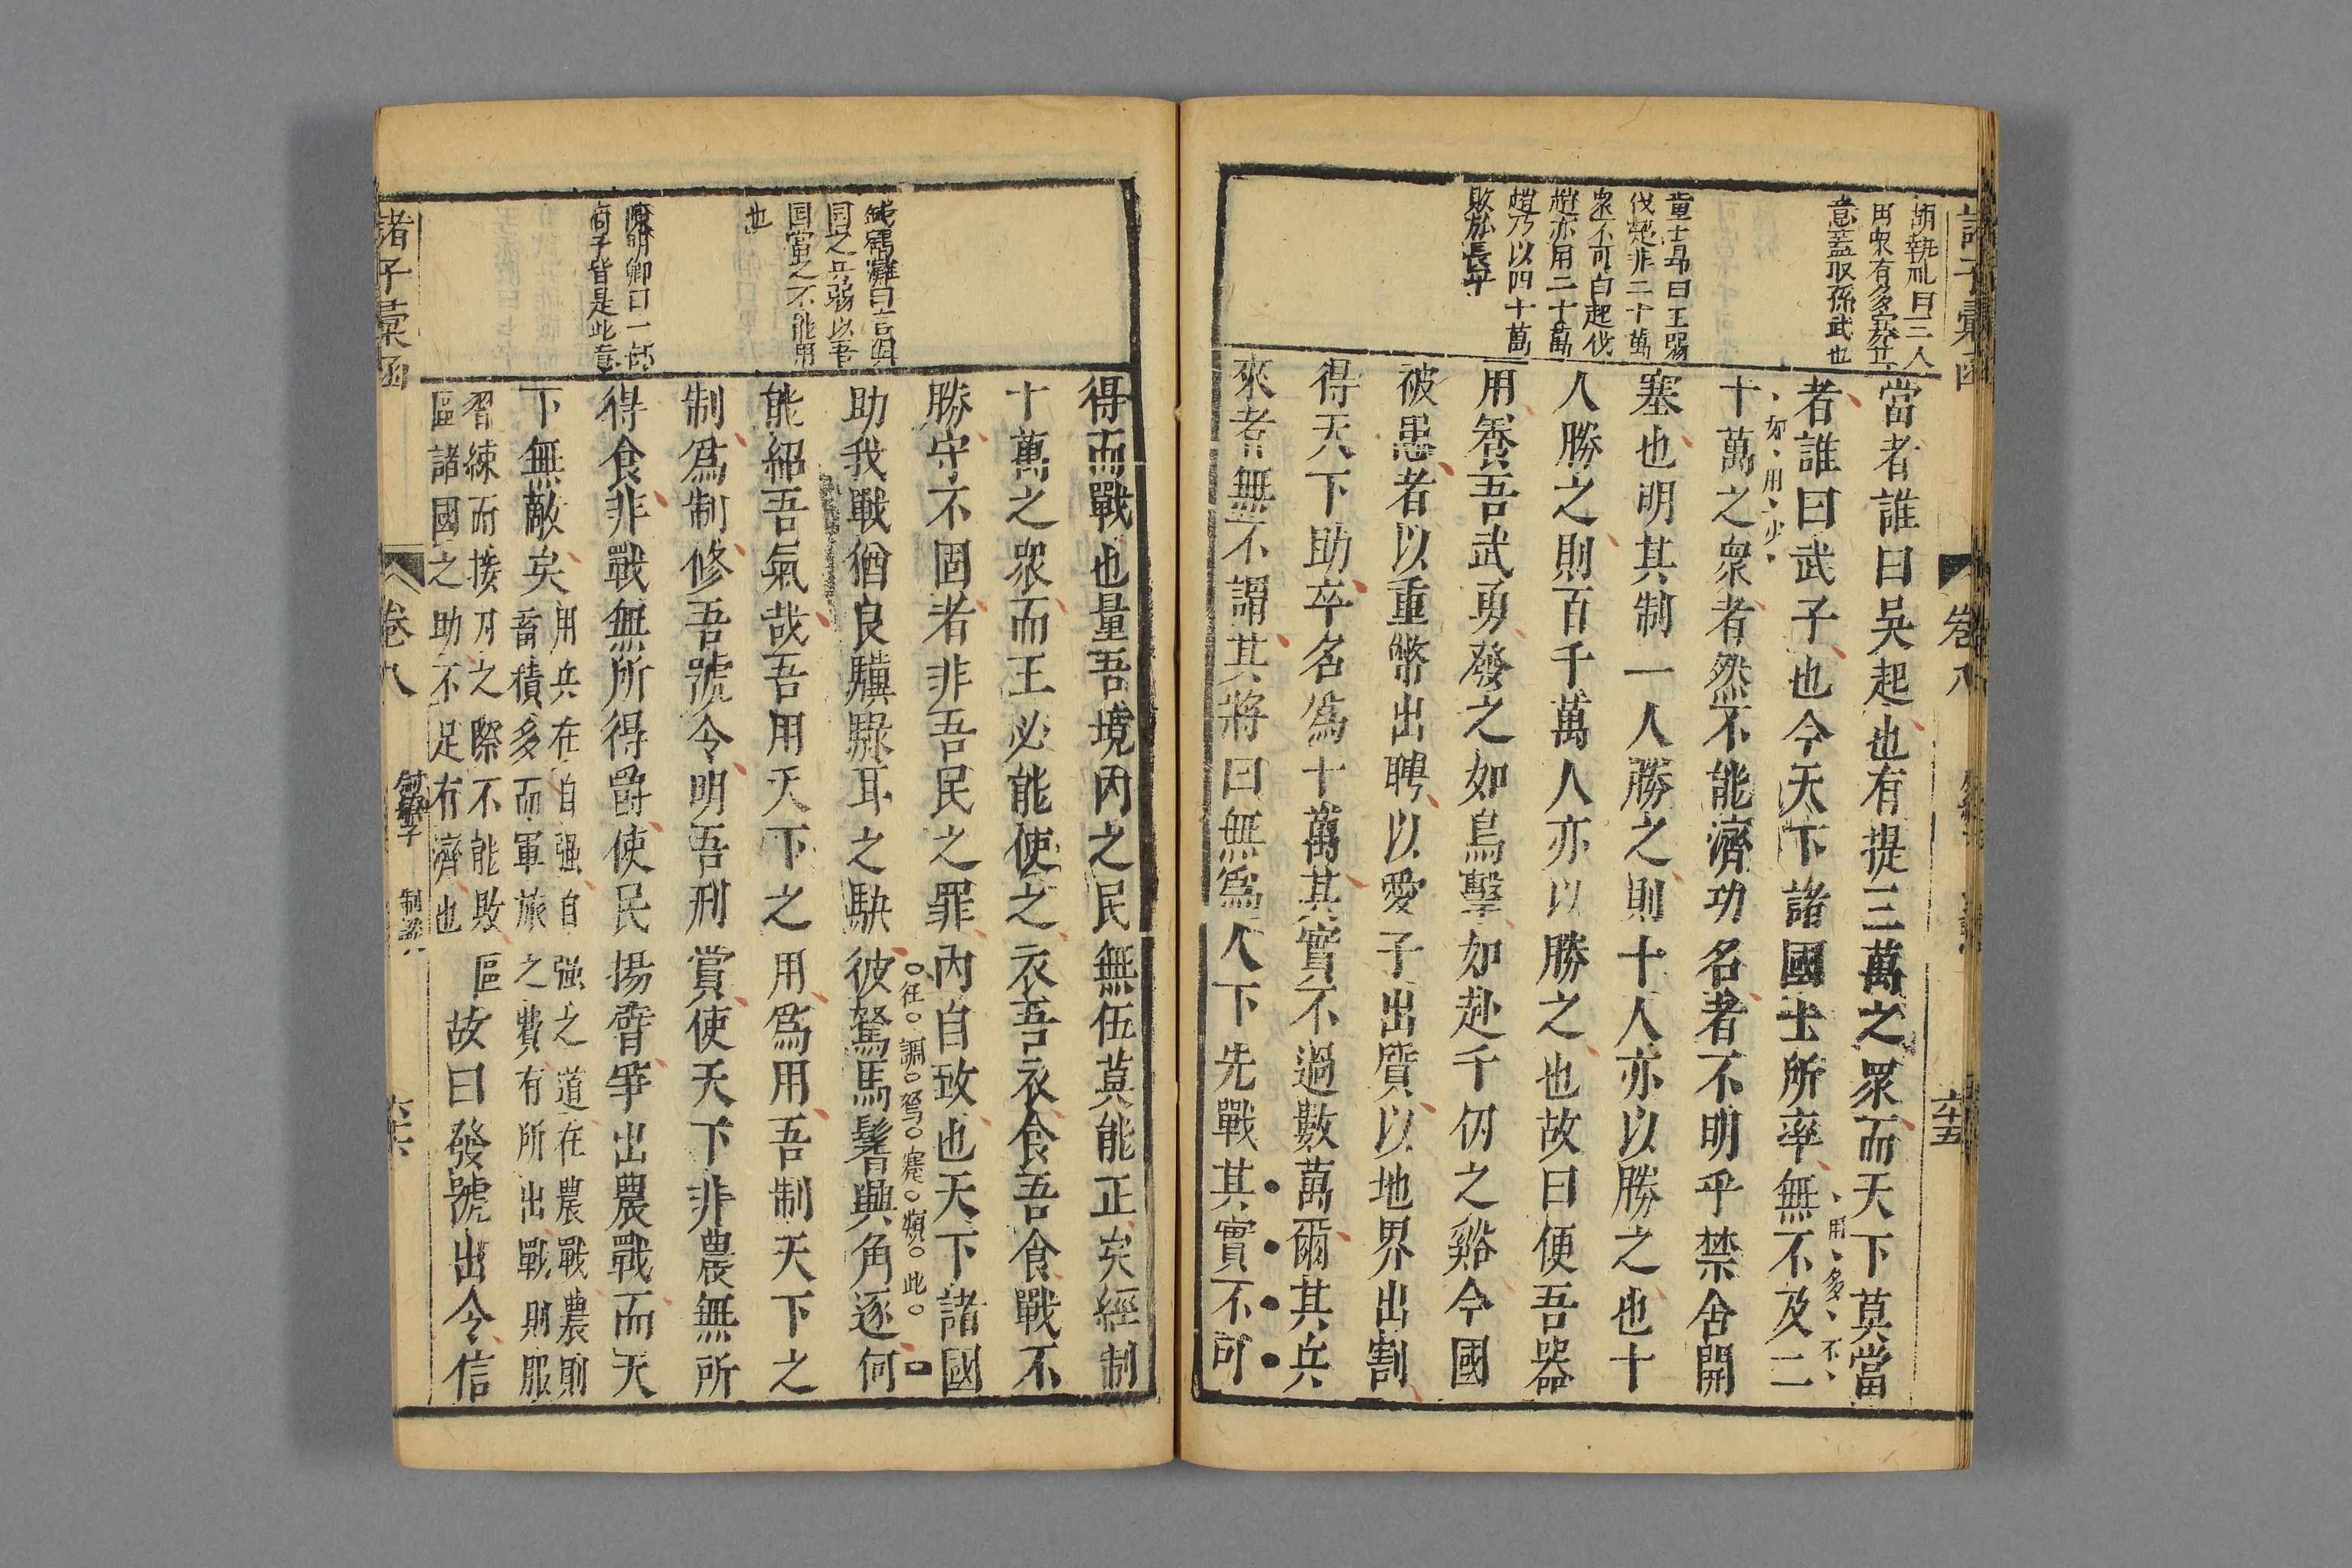 胡執礼曰三人
用衆有多寡其
意蓋取孫武也
童士昂曰王翦
伐楚非二十萬
衆不可白起伐
趙亦用二十萬
趙乃以四十萬
敗於長平
當者誰曰吳起也有提三萬之眾而天下莫當
者誰曰武子也今天下諸國士所率無不及二
用多不
如用少
十萬之衆者然不能濟功名者不明乎禁舍開
塞也明其制一人勝之則十人亦以勝之也十
人勝之則百千萬人亦以勝之也故曰便吾器
用養吾武勇發之如鳥擊如赴千仞之谿今國
被患者以重幣出聘以愛子出質以地界出割
得天下助卒名爲十萬其實不過數萬爾其兵
來者無不謂其將曰無爲人下先戰其實不可
諸子彙函
卷八
六十五
曰言與
国之兵弱以吾
国當之不能用
也
陳明卿曰一部
荀子皆是此意
得而戰也量吾境內之民無伍莫能正矣經制
十萬之衆而王必能使之衣吾衣食吾食戰不
勝守不固者非吾民之罪內自致也天下諸國
助我戰猶良驥騄耳之駃彼駑馬鬐興角逐何
能紹吾氣哉吾用天下之用爲用吾制天下之
制爲制修吾號令明吾刑賞使天下非農無所
得食非戰無所得爵使民揚臂爭出農戰而天
下無敵矣
用兵在自强自强之道在農戰農則
畜積多而軍旅之費有所出戰則服
習練而接刃之際不能敗區
區諸國之助不足有濟也
故曰發號出令信
諸子彙函
卷八
制談
六十六